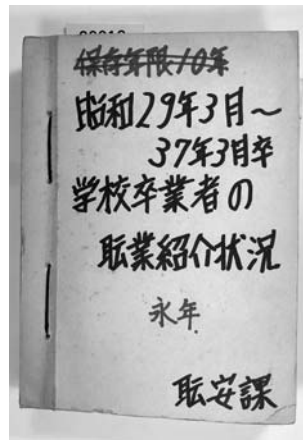 保存年限10年
昭和29年3月～
37年3月卒
学校卒業者の
耺業紹介状況
永年
耺安課